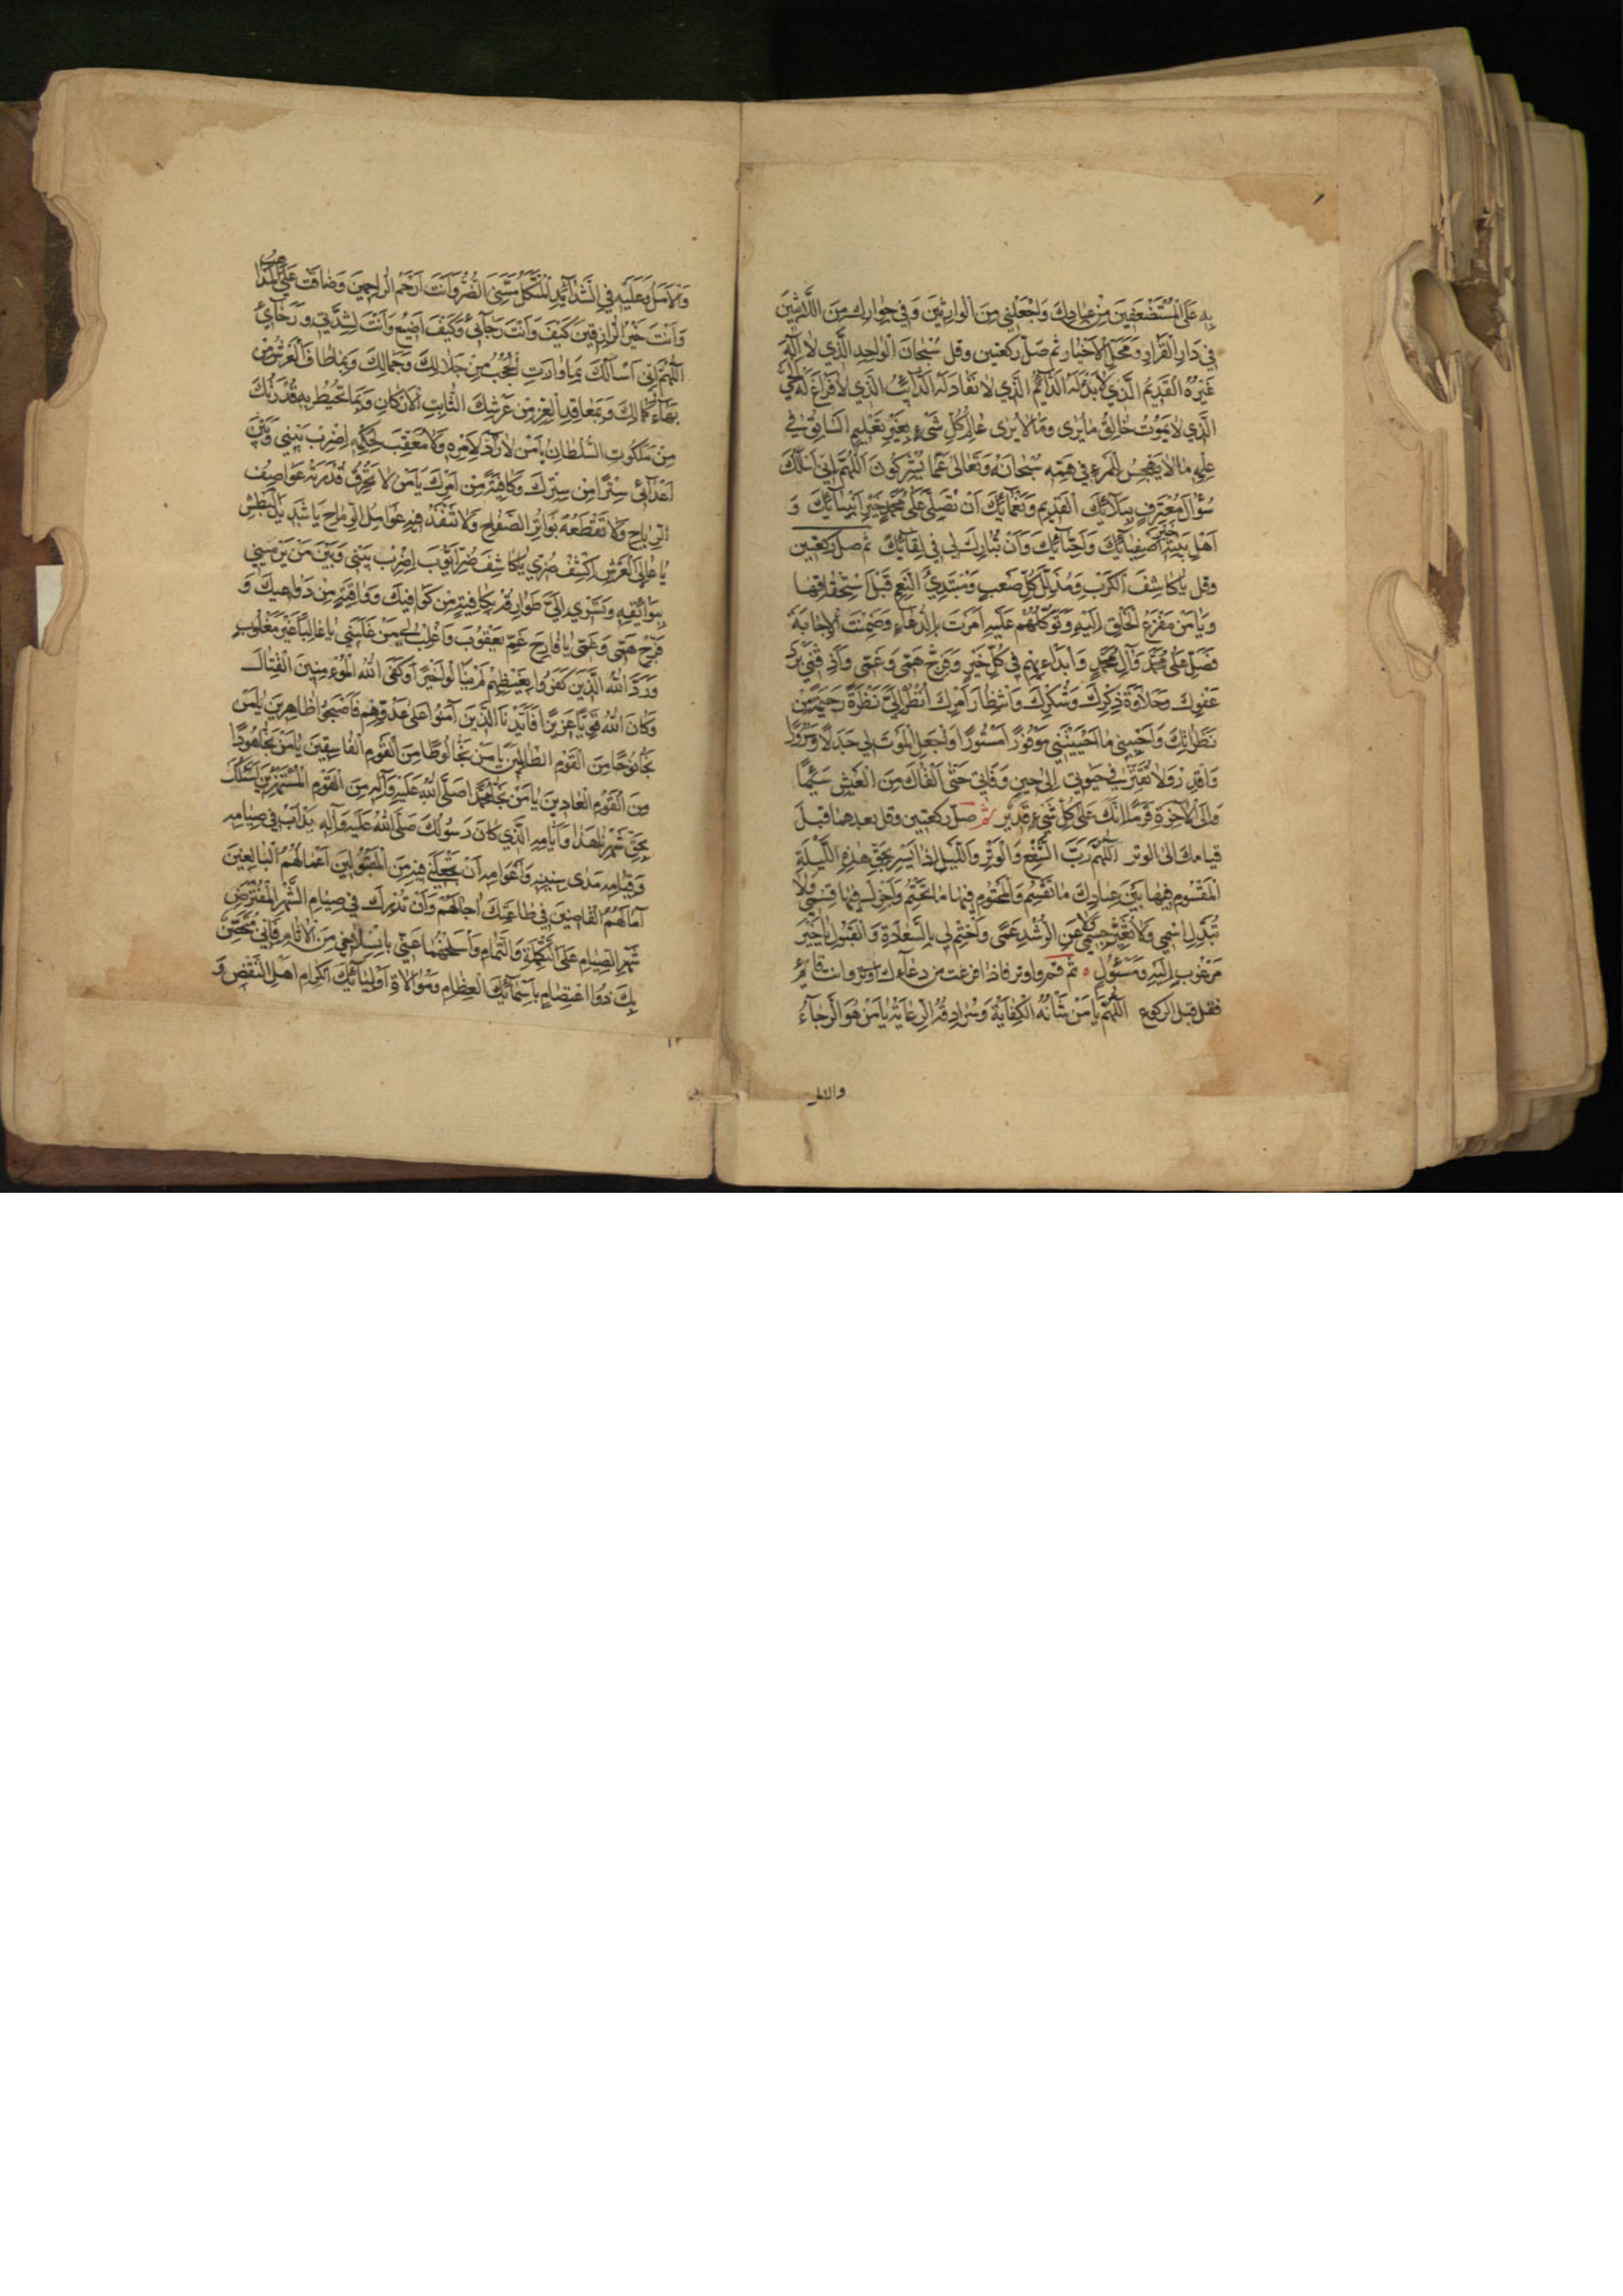 بِهِ عَلَى الْمُسْتَضْعَفِينَ مِنْ عِبَادِكَ وَاجْعَلْنِي مِنَ الْوَارِثِينَ وَفِي جِوَارِكَ مِنَ اللَّابِثِينَ
فِي دَارِ الْقَرَارِ وَمَحَلِّ الْأَخْيَارِ ثم صَلّ ركعتين وقل سُبْحَانَ الْوَاحِدِ الَّذِي لَا إِلَهَ
غَيْرُهُ الْقَدِيمِ الَّذِي لَا بَدْءَ لَهُ الدَّائِمِ الَّذِي لَا نَفَادَ لَهُ الدَّائِبِ الَّذِي لَا فَرَاغَ لَهُ الْحَيِّ
الَّذِي لَا يَمُوتُ خَالِقِ مَا يُرَى وَمَا لَا يُرَى عَالِمِ كُلِّ شَيْءٍ بِغَيْرِ تَعْلِيمٍ السَّابِقِ فِي
عِلْمِهِ مَا لَا يَهْجِسُ لِلْمَرْءِ فِي وَهْمِهِ سُبْحَانَهُ وَتَعَالَى عَمَّا يُشْرِكُونَ اللَّهُمَّ إِنِّي أَسْأَلُكَ
سُؤَالَ مُعْتَرِفٍ بِبَلَائِكَ الْقَدِيمِ وَنَعْمَائِكَ أَنْ تُصَلِّيَ عَلَى مُحَمَّدٍ خَيْرِ أَنْبِيَائِكَ وَ
أَهْلِ بَيْتِهِ خَيْرِ أَصْفِيَائِكَ وَأَحِبَّائِكَ وَأَنْ تُبَارِكَ لِي فِي لِقَائِكَ ثم صل ركعتين
وقل يَا كَاشِفَ الْكَرْبِ وَمُذَلِّلَ كُلِّ صَعْبٍ وَمُبْتَدِئَ النِّعَمِ قَبْلَ اسْتِحْقَاقِهَا
وَيَا مَنْ مَفْزَعُ الْخَلْقِ إِلَيْهِ وَتَوَكُّلُهُمْ عَلَيْهِ أَمَرْتَ بِالدُّعَاءِ وَضَمِنْتَ الْإِجَابَةَ
فَصَلِّ عَلَى مُحَمَّدٍ وَآلِ مُحَمَّدٍ وَابْدَأْ بِهِمْ فِي كُلِّ خَيْرٍ وَفَرِّجْ هَمِّي وَغَمِّي وَأَذِقْنِي بَرْدَ
عَفْوِكَ وَحَلَاوَةَ ذِكْرِكَ وَشُكْرِكَ وَانْتِظَارَ أَمْرِكَ انْظُرْ إِلَيَّ نَظْرَةً رَحِيمَةً مِنْ
نَظَرَاتِكَ وَأَحْيِنِي مَا أَحْيَيْتَنِي مَوْفُورًا مَسْتُورًا وَاجْعَلِ الْمَوْتَ لِي جَذَلًا وَسُرُورًا
وَاقْدِرْ وَلَا تُقَتِّرْ فِي حَيَوتِي إِلَى حِينِ وَفَاتِي حَتَّى أَلْقَاكَ مِنَ الْعَيْشِ سَئِمًا
وَإِلَى الْآخِرَةِ قَرِمًا إِنَّكَ عَلَى كُلِّ شَيْءٍ قَدِيرٌ ثم صلّ ركعتين وقل بعدهما قبل
قيامك الى الوتر اللَّهُمَّ رَبَّ الشَّفْعِ وَالْوَتْرِ وَاللَّيْلِ إِذَا يَسْرِ بِحَقِّ هَذِهِ اللَّيْلَةِ
الْمَقْسُومِ فِيهَا بَيْنَ عِبَادِكَ مَا تَقْسِمُ وَالْمَحْتُومِ فِيهَا مَا تَحْتِمُ وَأَجْزِلْ فِيهَا قِسْمِي وَلَا
تُبَدِّلِ اسْمِي وَلَا تُغَيِّرْ جِسْمِي وَلَا عَنِ الرُّشْدِ عَمًى وَاخْتِمْ لِي بِالسَّعَادَةِ وَالْقَبُولِ يَا خَيْرَ
مَرْغُوبٍ إِلَيْهِ وَمَسْئُولٍ ثم قم واوتر فاذا فرغت من دعاء الوتر وانت قائم
فقل قبل الركوع اللَّهُمَّ يَا مَنْ شَأْنُهُ الْكِفَايَةُ وَسُرَادِقُهُ الرِّعَايَةُ يَا مَنْ هُوَ الرَّجَاءُ
والامل
وَالْأَمَلُ وَعَلَيْهِ فِي الشَّدَائِدِ الْمُتَّكَلُ مَسَّنِيَ الضُّرُّ وَأَنْتَ أَرْحَمُ الرَّاحِمِينَ وَضَاقَتْ عَلَيَّ الْمَذَاهِبُ
وَأَنْتَ خَيْرُ الرَّازِقِينَ كَيْفَ وَأَنْتَ رَجَائِي وَكَيْفَ أَضِيعُ وَأَنْتَ لِشِدَّتِي وَرَخَائِي
اللَّهُمَّ إِنِّي أَسْأَلُكَ بِمَا وَارَتِ الْحُجُبُ مِنْ جَلَالِكَ وَجَمَالِكَ وَبِمَا طَافَ الْعَرْشُ مِنْ
بَهَاءِ كَمَالِكَ وَبِمَعَاقِدِ الْعِزِّ مِنْ عَرْشِكَ الثَّابِتِ الْأَرْكَانِ وَبِمَا تُحِيطُ بِهِ قُدْرَتُكَ
مِنْ مَلَكُوتِ السُّلْطَانِ يَا مَنْ لَا رَادَّ لِأَمْرِهِ وَلَا مُعَقِّبَ لِحُكْمِهِ اضْرِبْ بَيْنِي وَبَيْنَ
أَعْدَائِي سِتْرًا مِنْ سِتْرِكَ وَكَافِيَةً مِنْ أَمْرِكَ يَا مَنْ لَا تَخْرِقُ قُدْرَتَهُ عَوَاصِفُ
الرِّيَاحِ وَلَا تَقْطَعُهُ بَوَاتِرُ الصِّفَاحِ وَلَا تَنْفُذُ فِيهِ عَوَامِلُ الرِّمَاحِ يَا شَدِيدَ الْبَطْشِ
يَا عَالِيَ الْعَرْشِ اكْشِفْ ضُرِّي يَا كَاشِفَ ضُرِّ أَيُّوبَ اضْرِبْ بَيْنِي وَبَيْنَ مَنْ يَرْمِينِي
بِبَوَائِقِهِ وَتَسْرِي إِلَيَّ طَوَارِقُهُ بِكَافِيَةٍ مِنْ كَوَافِيكَ وَوَاقِيَةٍ مِنْ دَوَاعِيكَ وَ
فَرِّجْ هَمِّي وَغَمِّي يَا فَارِجَ غَمِّ يَعْقُوبَ وَاغْلِبْ لِي مَنْ غَلَبَنِي يَا غَالِبًا غَيْرَ مَغْلُوبٍ
وَرَدَّ اللَّهُ الَّذِينَ كَفَرُوا بِغَيْظِهِمْ لَمْ يَنَالُوا خَيْرًا وَكَفَى اللَّهُ الْمُؤْمِنِينَ الْقِتَالَ
وَكَانَ اللَّهُ قَوِيًّا عَزِيزًا فَأَيَّدْنَا الَّذِينَ آمَنُوا عَلَى عَدُوِّهِمْ فَأَصْبَحُوا ظَاهِرِينَ يَا مَنْ
نَجَّا نُوحًا مِنَ الْقَوْمِ الظَّالِمِينَ يَا مَنْ نَجَّا لُوطًا مِنَ الْقَوْمِ الْفَاسِقِينَ يَا مَنْ نَجَّا هُودًا
مِنَ الْقَوْمِ الْعَادِينَ يَا مَنْ نَجَّا مُحَمَّدًا صَلَّى اللَّهُ عَلَيْهِ وَآلِهِ مِنَ الْقَوْمِ الْمُسْتَهْزِئِينَ أَسْأَلُكَ
بِحَقِّ شَهْرِنَا هَذَا وَأَيَّامِهِ الَّذِي كَانَ رَسُولُكَ صَلَّى اللَّهُ عَلَيْهِ وَآلِهِ يَدْأَبُ فِي صِيَامِهِ
وَقِيَامِهِ مَدَى سِنِينِهِ وَأَعْوَامِهِ أَنْ تَجْعَلَنِي فِيهِ مِنَ الْمَقْبُولِينَ أَعْمَالُهُمُ الْبَالِغِينَ
آمَالَهُمُ الْقَاضِينَ فِي طَاعَتِكَ آجَالَهُمْ وَأَنْ تُدْرِكَ فِي صِيَامِ الشَّهْرِ الْمُفْتَرَضِ
شَهْرِ الصِّيَامِ عَلَى التَّكْمِلَةِ وَالتَّمَامِ وَاسْلَخْهُمَا عَنِّي بِانْسِلَاخِي مِنَ الْآثَامِ فَإِنِّي مُتَحَصِّنٌ
بِكَ ذُو اعْتِصَامٍ بِأَسْمَائِكَ الْعِظَامِ وَمُوَالَاةِ أَوْلِيَائِكَ الْكِرَامِ أَهْلِ النَّقْضِ وَ